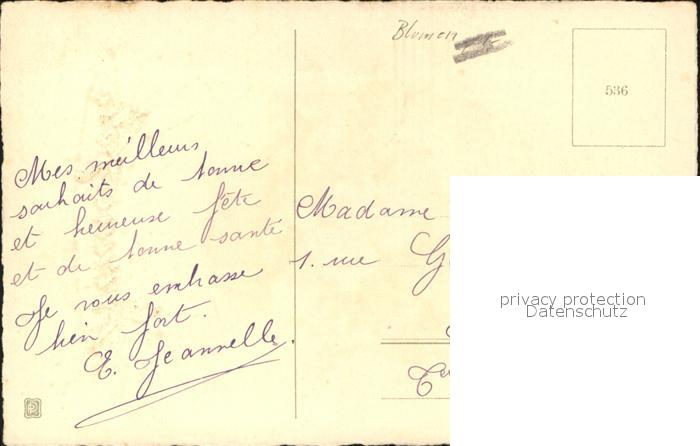 Blumen
536
Mes meilleurs
souhaits de bonne
et heureuse fête
et de bonne santé
Je vous embrasse
bien fort.
E. Jeannelle.
Madame
1. rue G
privacy protection
Datenschutz